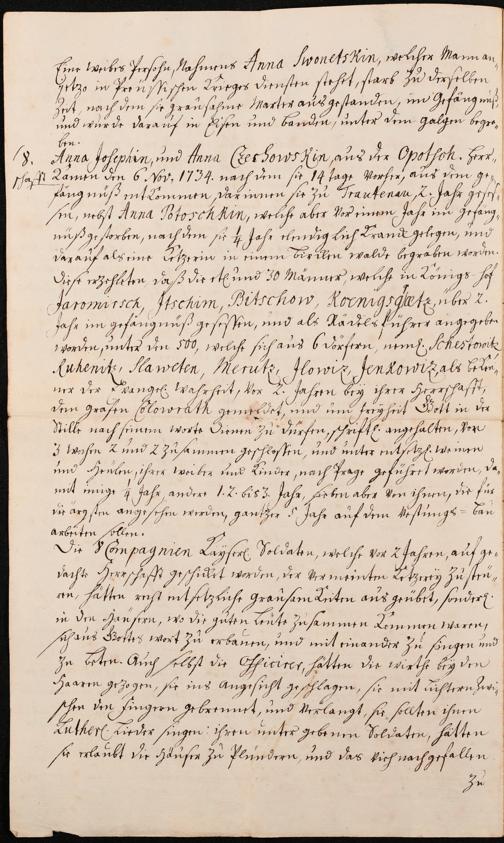 Eine Weibes Persohn, Nahmens Anna Swonetskin, welcher Mann an-
jetzo in Preußischen Krieges diensten stehet, starb zu derselben
Zeit, nach dem sie grausahme Marter ausgestanden, im Gefängnüß
und wurde darauf in Eisen und banden, unter dem galgen begra-
ben.
18. Anna Josephin, und Anna Czechowskin, aus der Opotsch. Herr-
schafft kamen den 6. Nov. 1734. nach dem sie 14 tage vorher, aus dem ge-
fängnuß entkommen, darinnen sie zu Trautenau 2. Jahr geses-
sen, nebst Anna Potoschkin, welche aber vor einem Jahr im gefäng-
nuß gestorben, nach dem sie 4 Jahr elendiglich kranck gelegen, und
darauf als eine Ketzerin in einem walde begraben worden.
Diese erzehleten, daß die und 30 Männer, welche in Königs-hof
Jaromirsch, Jtschim, Bitschow, Koenigsgætz, über 2.
Jahr im gefängnuß gesessen, und als Rädels führer angegeben
worden, unter den 500, welche sich aus 6 dörfern, neml. Schestowitz
Ruhenitz, Slaweten, Merutz, Jlowiz, Jenkowiz als beken-
ner der Evangel. Wahrheit, vor 2. Jahren bey ihrer Herrschafft,
dem grafen Colowrath gemeldet, und um freyheit Gott in der
Stille nach seinem worte dienen zu dürfen, schriftl. angehalten, vor
3 wochen 2 und 2 zusammen geschlossen, und unter entsetzl. weinen
und Heulen, ihrer weiber und Kinder, nach Prage geführet worden, da-
mit einige 4 Jahr, andere 1. 2. bis 3. Jahr, sieben aber von ihnen, die für
die ärgsten angesehen werden, gantzer 5 Jahr auf dem Vestungs-bau
arbeiten sollen.
Die 8 Compagnien Kayserl. Soldaten, welche vor 2 Jahren, auf ge-
dachte Herrschafft geschickt worden, der vermeinten Ketzerey zu steu-
ren, hätten recht entsetzliche grausamkeiten aus geübet, sonderl.
in den Häusern, wo die guten Leute zusammen kommen waren,
sich aus Gottes wort zu erbauen, und mit einander zu singen und
zu beten. Auch selbst die Officirer, hätten die wirthe bey den
Haaren gezogen, sie ins angesicht geschlagen, sie mit lichtern zwi-
schen den fingern gebrennet, und verlangt, sie sollten ihnen
Lutherl. Lieder singen: ihren unter gebenen Soldaten, hätten
sie erlaubt die Häuser zu plündern, und das vieh nach gefallen
zu